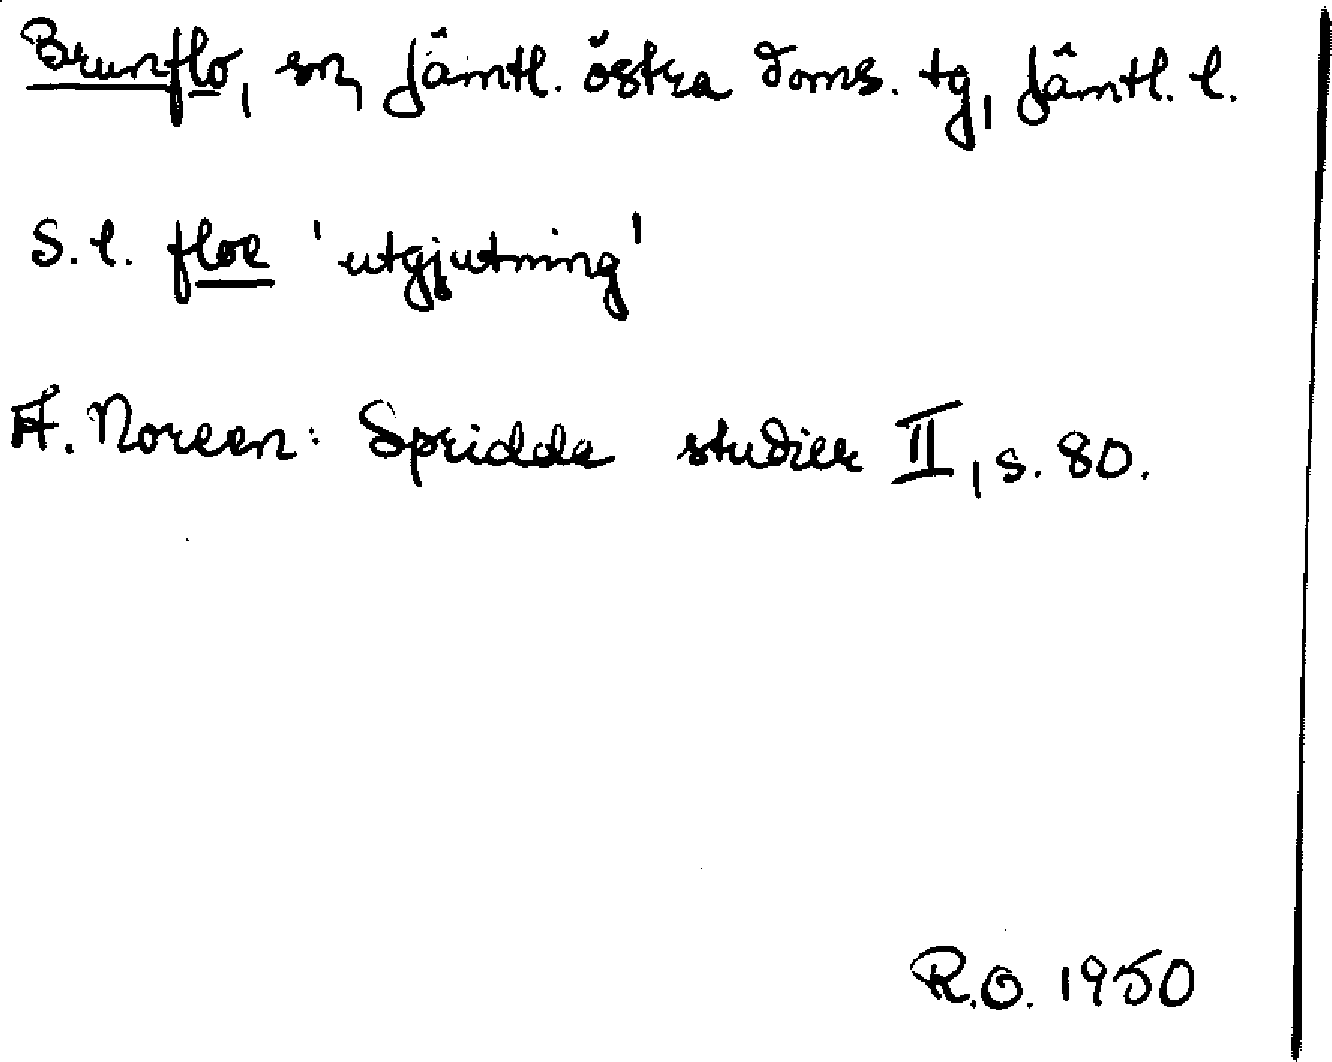 Brunflo, sn, Jämtl. östra doms. tg, Jämtl. l.
S. l. floe 'utgjutning'
A. Noreen: Spridda studier II, s. 80.
R.O. 1950